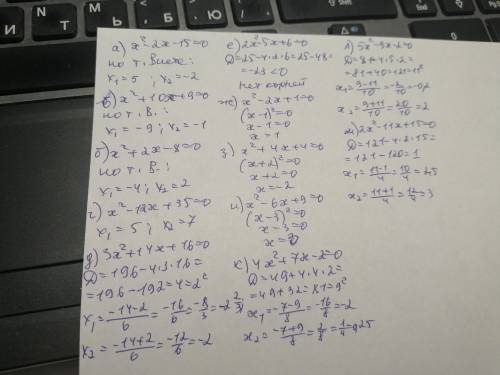 а) x²-2x-15=0
по т. Виета:
x₁=5 ; x₂=-2
в) x²+10x+9=0
по т. В.:
x₁=-9 ; x₂=-1
б) x²+2x-8=0
по т. В.:
x₁=-4; x₂=2
г) x²-12x+35=0
x₁=5 ; x₂=7
д) 3x²+14x+16=0
D=196-4·3·16=
=196-192=4=2²
x₁=(-14-2)/6=-16/6=-8/3=-2 2/3
x₂=(-14+2)/6=-12/6=-2
е) 2x²-5x+6=0
D=25-4·2·6=25-48=
=-23<0
нет корней
ж) x²-2x+1=0
(x-1)²=0
x-1=0
x=1
з) x²+4x+4=0
(x+2)²=0
x+2=0
x=-2
и) x²-6x+9=0
(x-3)²=0
x-3=0
к) 4x²+7x-2=0
D=49+4·4·2=
=49+32=81=9²
x₁=(-7-9)/8=-16/8=-2
x₂=(-7+9)/8=2/8=1/4=0,25
л) 5x²-9x-2=0
D=81+4·5·2=
=81+40=121=11²
x₁=(9-11)/10=-2/10=-0,2
x₂=(9+11)/10=20/10=2
м) 2x²-11x+15=0
D=121-4·2·15=
=121-120=1
x₁=(11-1)/4=10/4=2,5
x₂=(11+1)/4=12/4=3